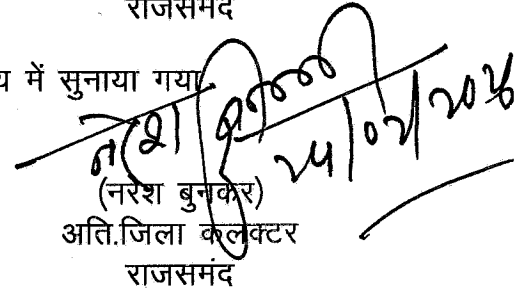 राजसमंद
य में सुनाया गया
नरेश
(नरेश बुनकर)
अति.जिला कलेक्टर
राजसमंद